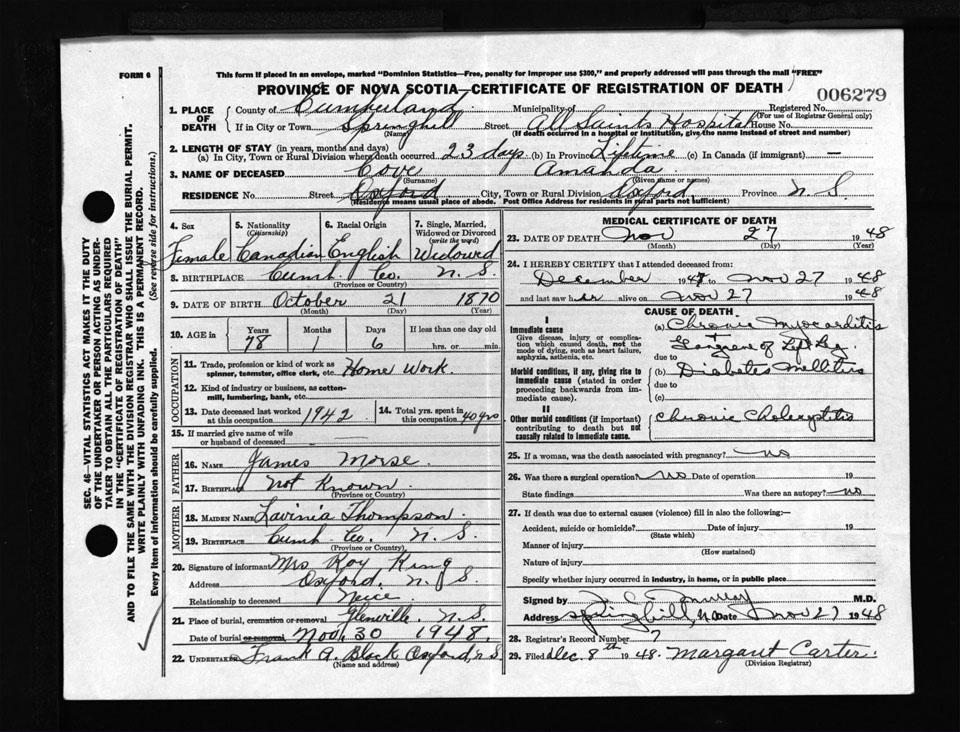 FORM 6
This form if placed in an envelope, marked "Dominion Statistics—Free, penalty for improper use $300," and properly addressed will pass through the mail "FREE"
PROVINCE OF NOVA SCOTIA—CERTIFICATE OF REGISTRATION OF DEATH
006279
1. PLACE OF DEATH
County of Cumberland Municipality of Registered No.
(For use of Registrar General only)
If in City or Town Springhill Street All Saints Hospital House No.
(Name) (If death occurred in a hospital or institution, give the name instead of street and number)
2. LENGTH OF STAY (in years, months and days)
(a) In City, Town or Rural Division where death occurred 23 days (b) In Province Lifetime (c) In Canada (if immigrant) —
3. NAME OF DECEASED Cove Amanda
(Surname) (Given name or names)
RESIDENCE No. Street Oxford City, Town or Rural Division Oxford Province N.S
(Residence means usual place of abode. Post Office Address for residents in rural parts not sufficient)
4. Sex 5. Nationality (Citizenship) 6. Racial Origin 7. Single, Married, Widowed or Divorced (write the word)
Female Canadian English Widowed
8. BIRTHPLACE Cumb. Co. N.S.
(Province or Country)
9. DATE OF BIRTH October 21 1870
(Month) (Day) (Year)
10. AGE in Years Months Days If less than one day old
78 1 6 hrs. or min.
OCCUPATION
11. Trade, profession or kind of work as spinner, teamster, office clerk, etc. Home Work.
12. Kind of industry or business, as cotton-mill, lumbering, bank, etc.
13. Date deceased last worked at this occupation 1942 14. Total yrs. spent in this occupation 40 yrs
15. If married give name of wife or husband of deceased
FATHER
16. NAME James Morse.
17. BIRTHPLACE Not Known
(Province or Country)
MOTHER
18. MAIDEN NAME Lavinia Thompson.
19. BIRTHPLACE Cumb. Co. N.S.
(Province or Country)
20. Signature of informant Mrs Roy King
Address Oxford. N.S.
Relationship to deceased Niece
21. Place of burial, cremation or removal Glenville. N.S.
Date of burial or removal Nov. 30 1948.
22. UNDERTAKER Frank A. Black Oxford, N.S
(Name and address)
MEDICAL CERTIFICATE OF DEATH
23. DATE OF DEATH Nov 27 1948
(Month) (Day) (Year)
24. I HEREBY CERTIFY that I attended deceased from:
December 1947 to Nov 27 1948
and last saw her alive on Nov 27 1948
CAUSE OF DEATH
I
Immediate cause
Give disease, injury or complication which caused death, not the mode of dying, such as heart failure, asphyxia, asthenia, etc.
(a) Chronic Myocarditis
+ Gangrene of Left Leg.
due to
Morbid conditions, if any, giving rise to immediate cause (stated in order proceeding backwards from immediate).
(b) Diabetes Mellitus
due to
(c)
II
Other morbid conditions (if important) contributing to death but not causally related to immediate cause.
Chronic Cholecystitis
25. If a woman, was the death associated with pregnancy? No
26. Was there a surgical operation? No Date of operation 19
State findings Was there an autopsy? No
27. If death was due to external causes (violence) fill in also the following:—
Accident, suicide or homicide? Date of injury 19
(State which)
Manner of injury
(How sustained)
Nature of injury
Specify whether injury occurred in industry, in home, or in public place
Signed by M.D.
Address Springhill, Date Nov 27 1948
28. Registrar's Record Number 7
29. Filed Dec. 8th 1948. Margaret Carter.
(Division Registrar)
SEC. 46—VITAL STATISTICS ACT MAKES IT THE DUTY
OF THE UNDERTAKER OR PERSON ACTING AS UNDER-
TAKER TO OBTAIN ALL THE PARTICULARS REQUIRED
IN THE "CERTIFICATE OF REGISTRATION OF DEATH"
AND TO FILE THE SAME WITH THE DIVISION REGISTRAR WHO SHALL ISSUE THE BURIAL PERMIT.
WRITE PLAINLY WITH UNFADING INK. THIS IS A PERMANENT RECORD.
Every item of information should be carefully supplied. (See reverse side for instructions.)